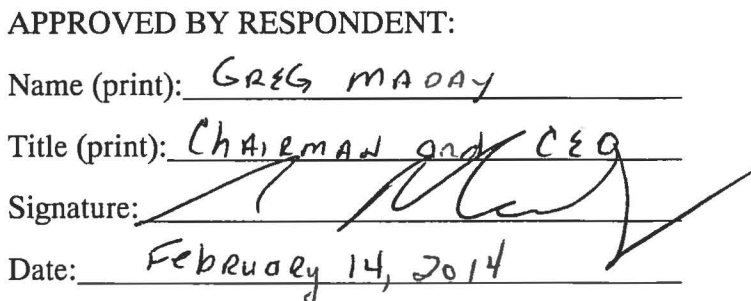 APPROVED BY RESPONDENT:
Name (print): GREG MADAY
Title (print): ChAIRMAN and CEO
Signature:
Date: February 14, 2014